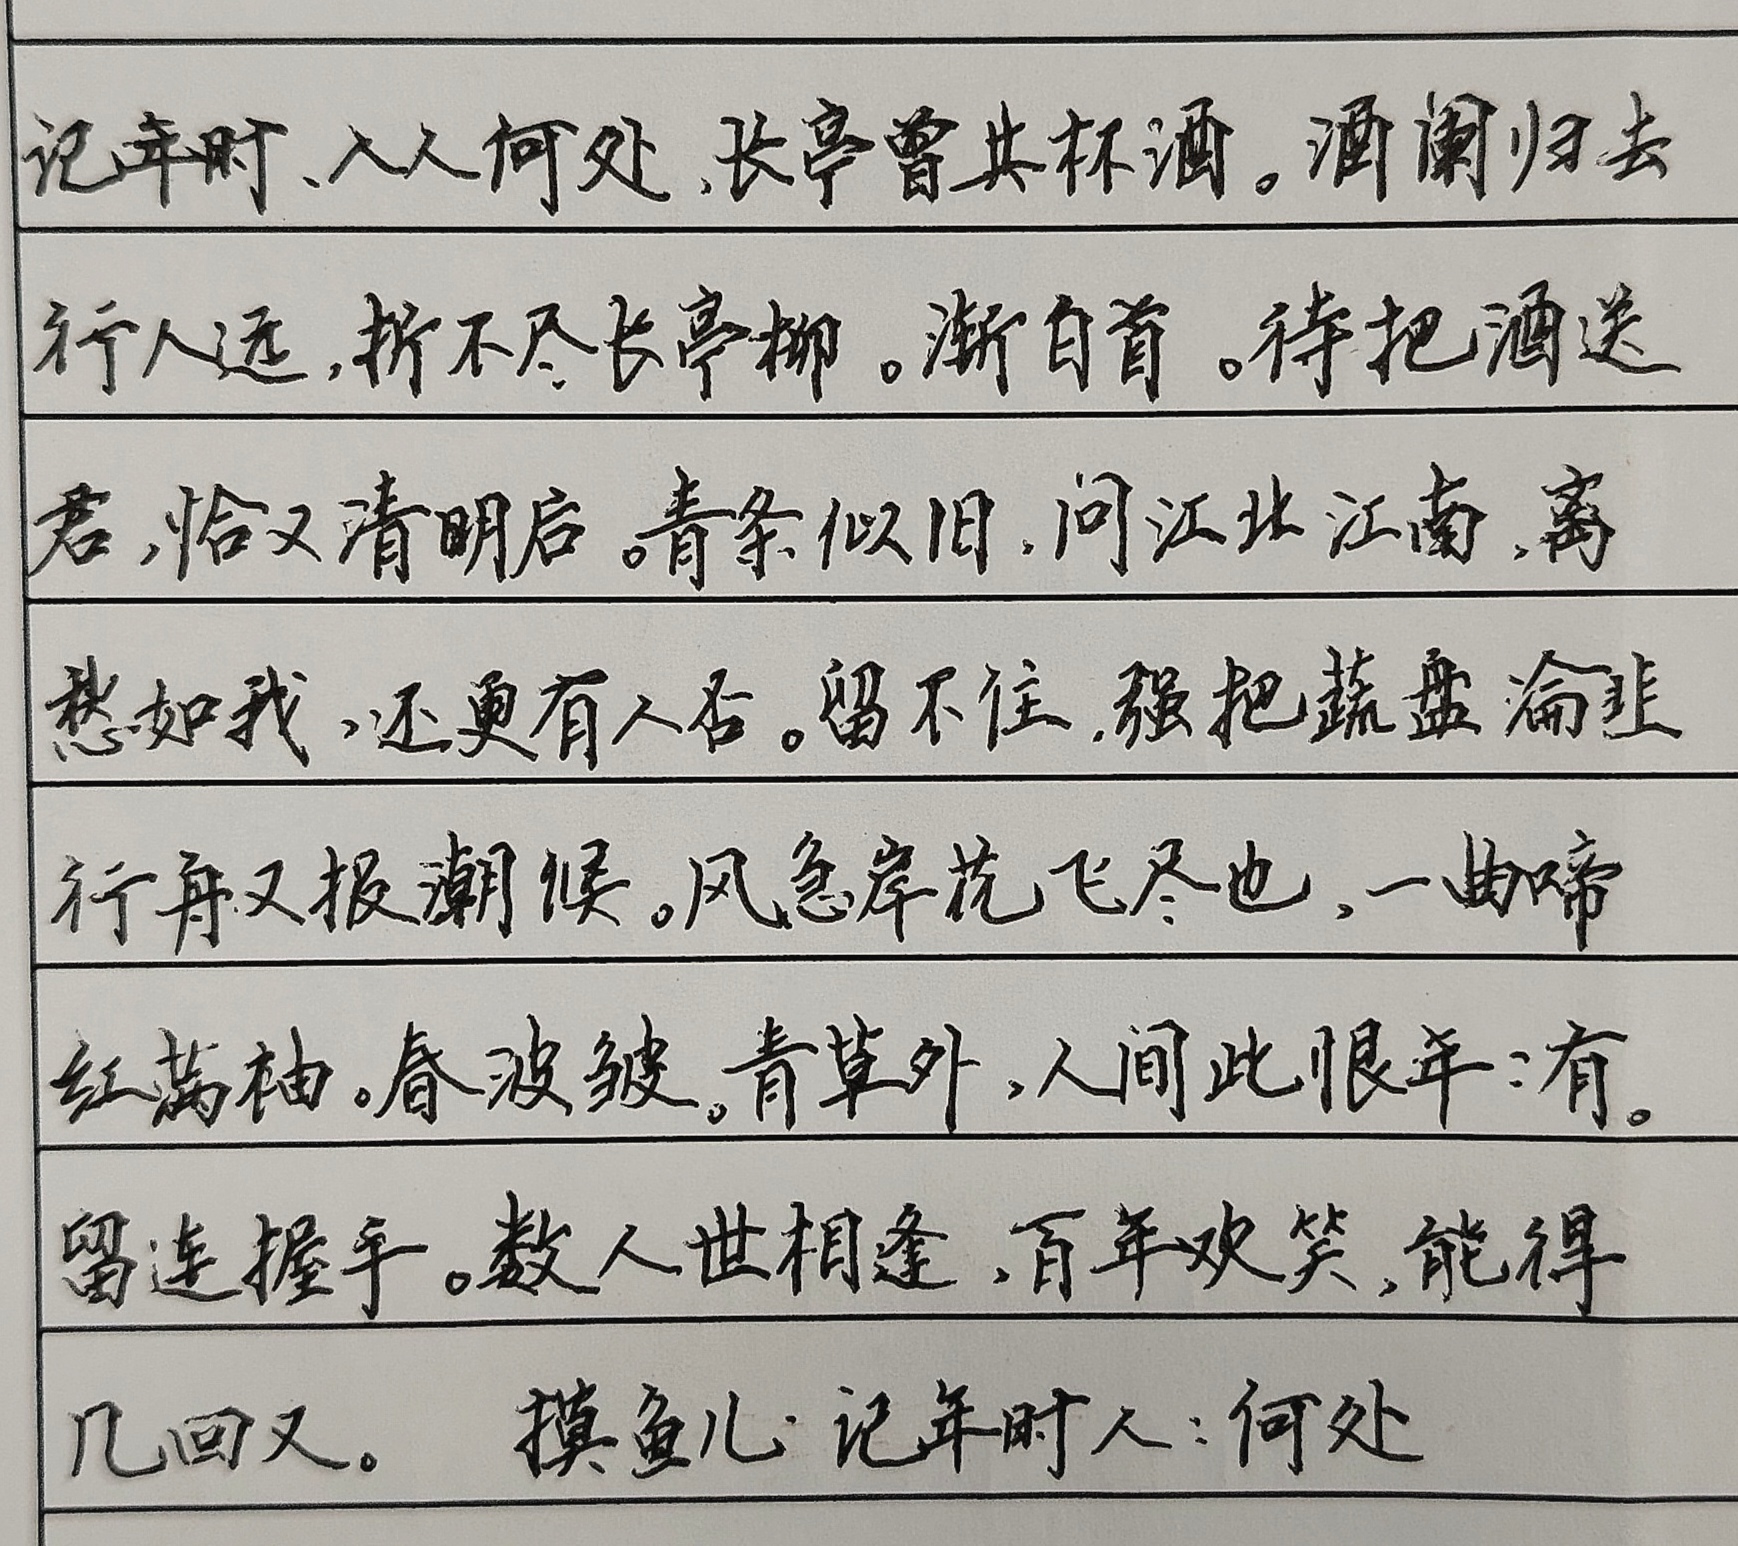 记年时、人人何处,长亭曾共杯酒。酒阑归去
行人远,折不尽长亭柳。渐白首。待把酒送
君,恰又清明后。青条似旧,问江北江南,离
愁如我,还更有人否。留不住,强把蔬盘瀹韭
行舟又报潮候。风急岸花飞尽也,一曲啼
红满袖。春波皱。青草外,人间此恨年:有。
留连握手。数人世相逢,百年欢笑,能得
几回又。 摸鱼儿·记年时人:何处